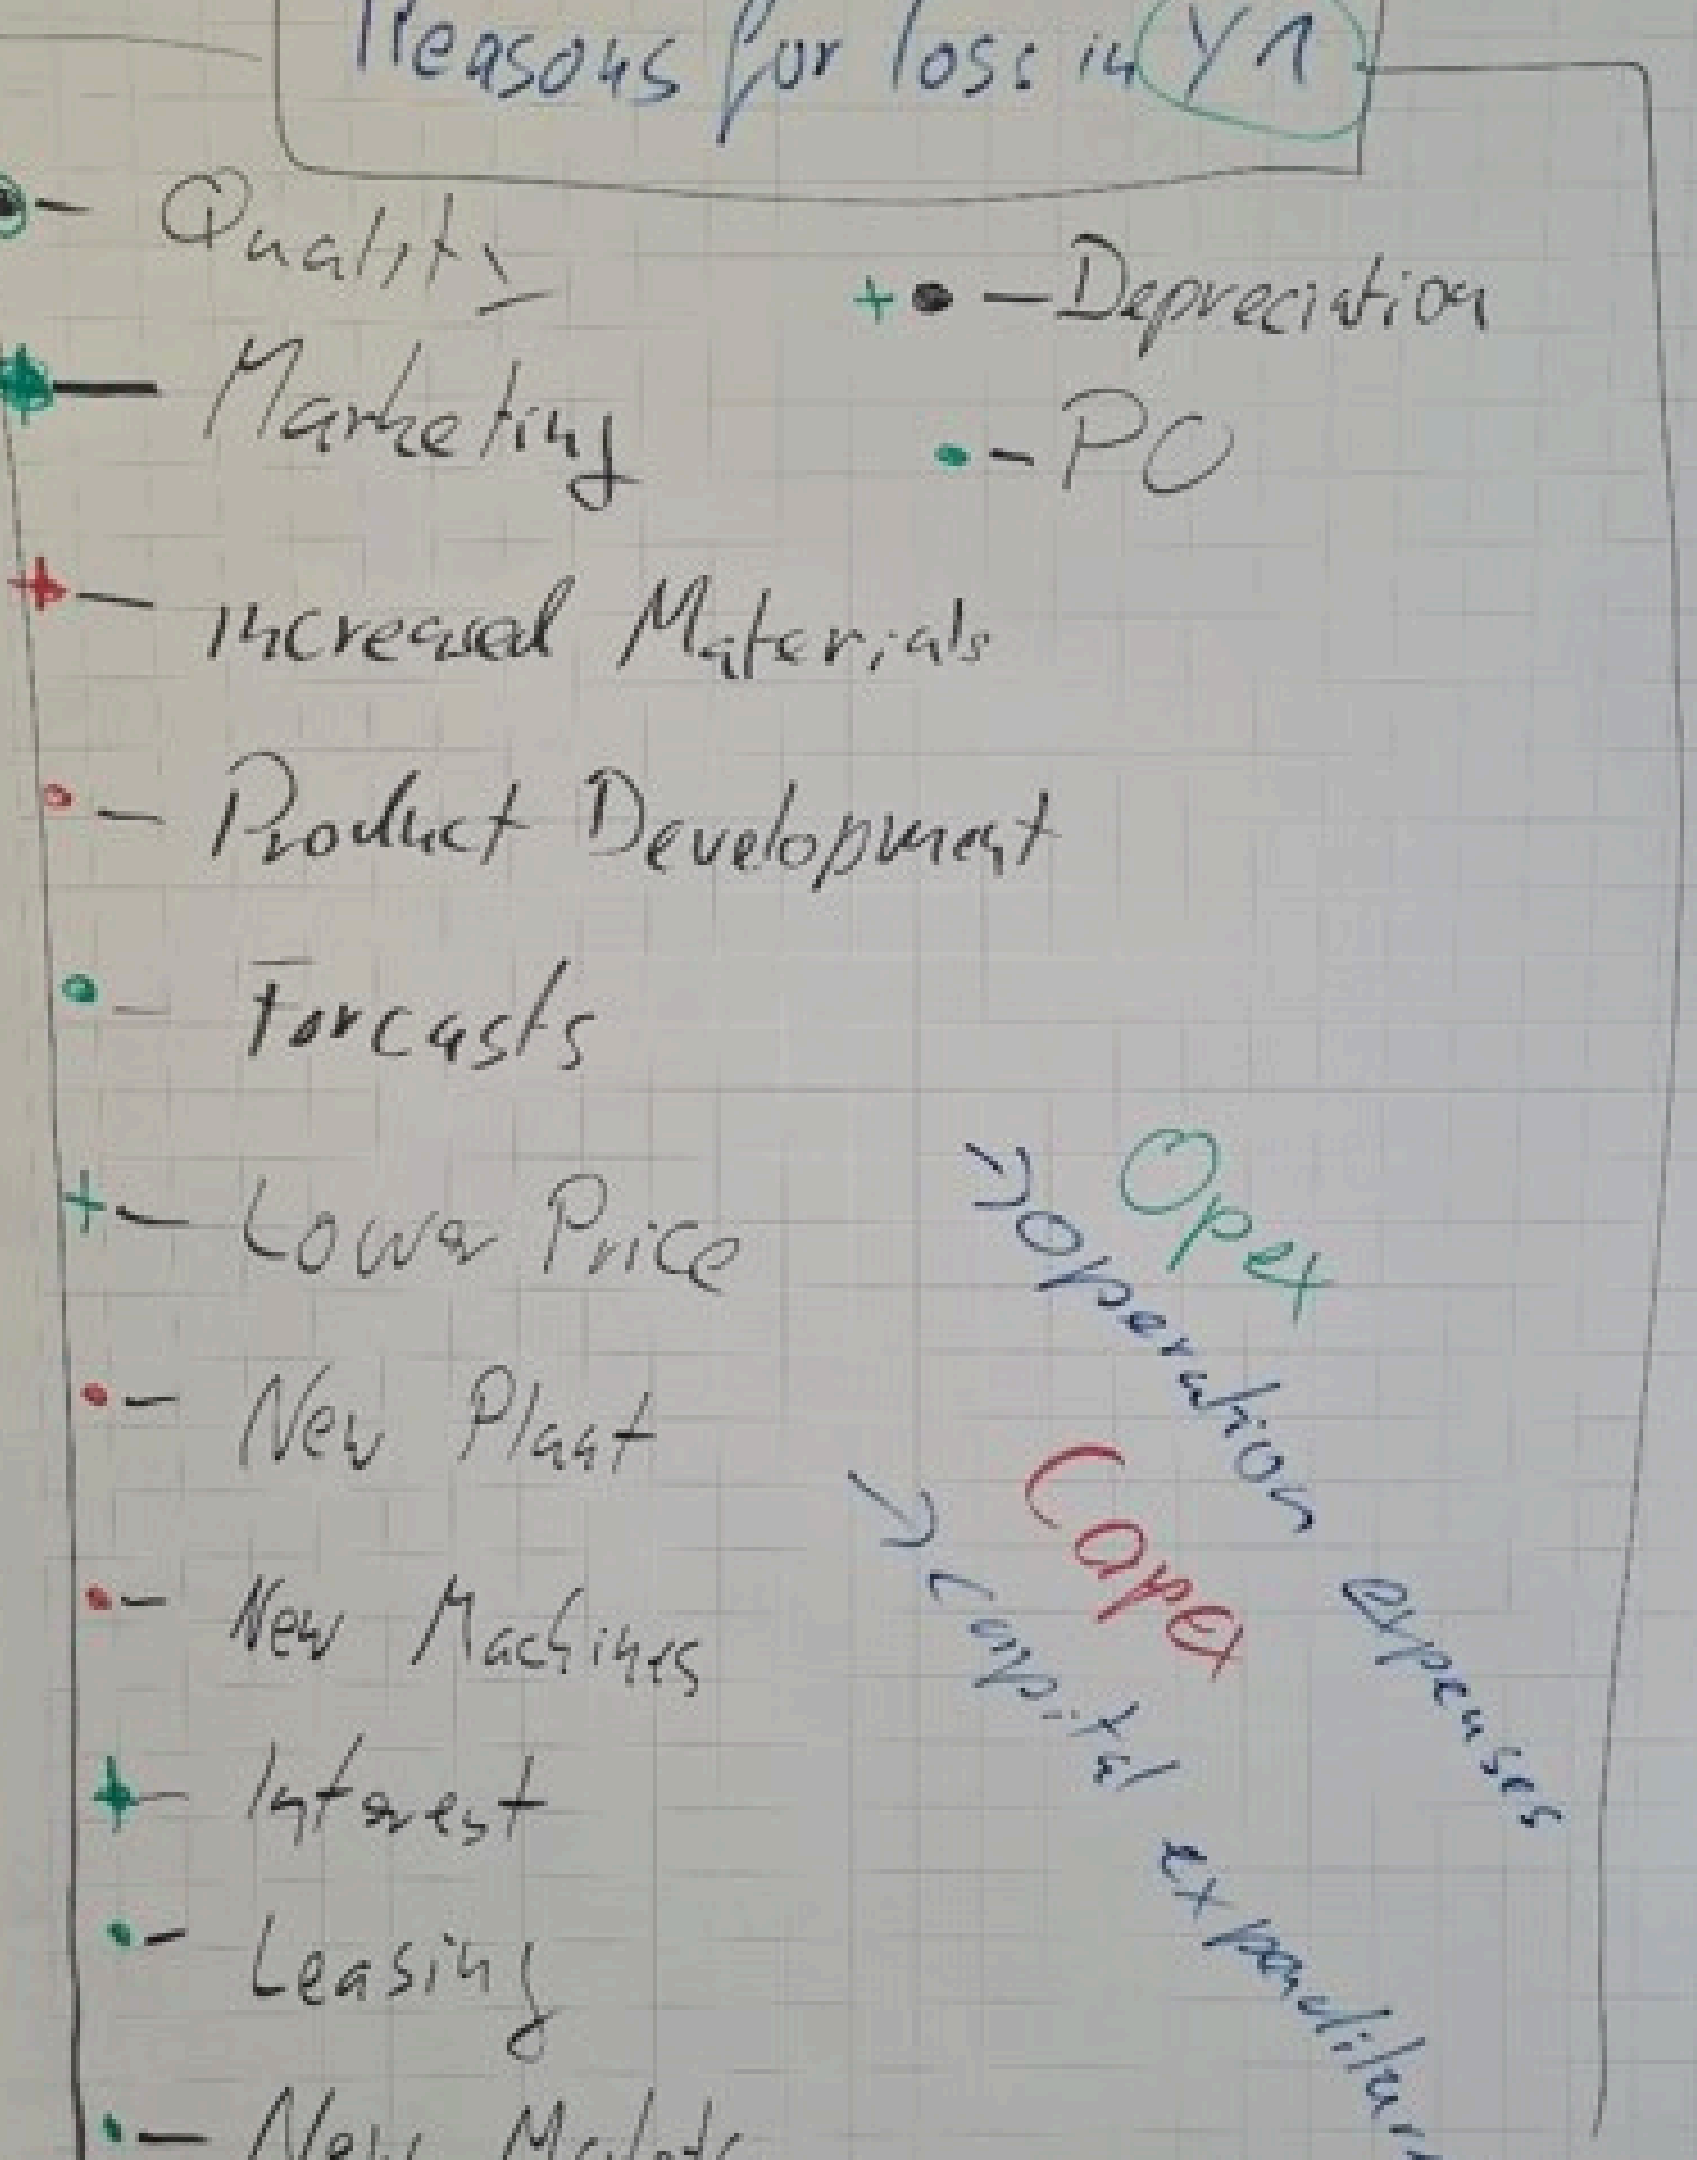 Reasons for loss in Y1
- Quality
- Marketing
- increased Materials
- Product Development
- Forcasts
- Lower Price
- New Plant
- New Machines
- Interest
- Leasing
- New
+ • - Depreciation
• - PO
Opex
→ Operation expenses
Capex
→ Capital expenditur